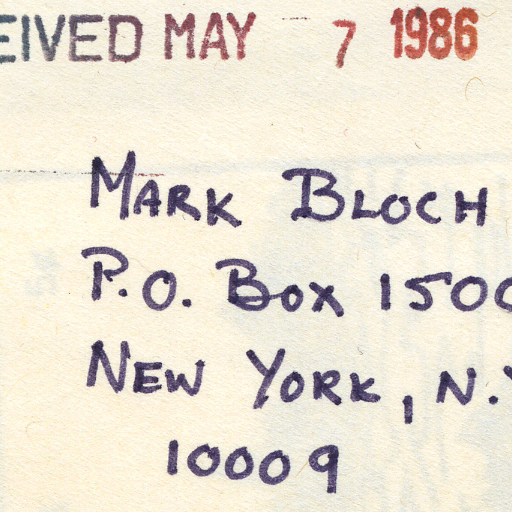 EIVED MAY 7 1986
MARK BLOCH
P.O. BOX 1500
NEW YORK, N.Y
10009